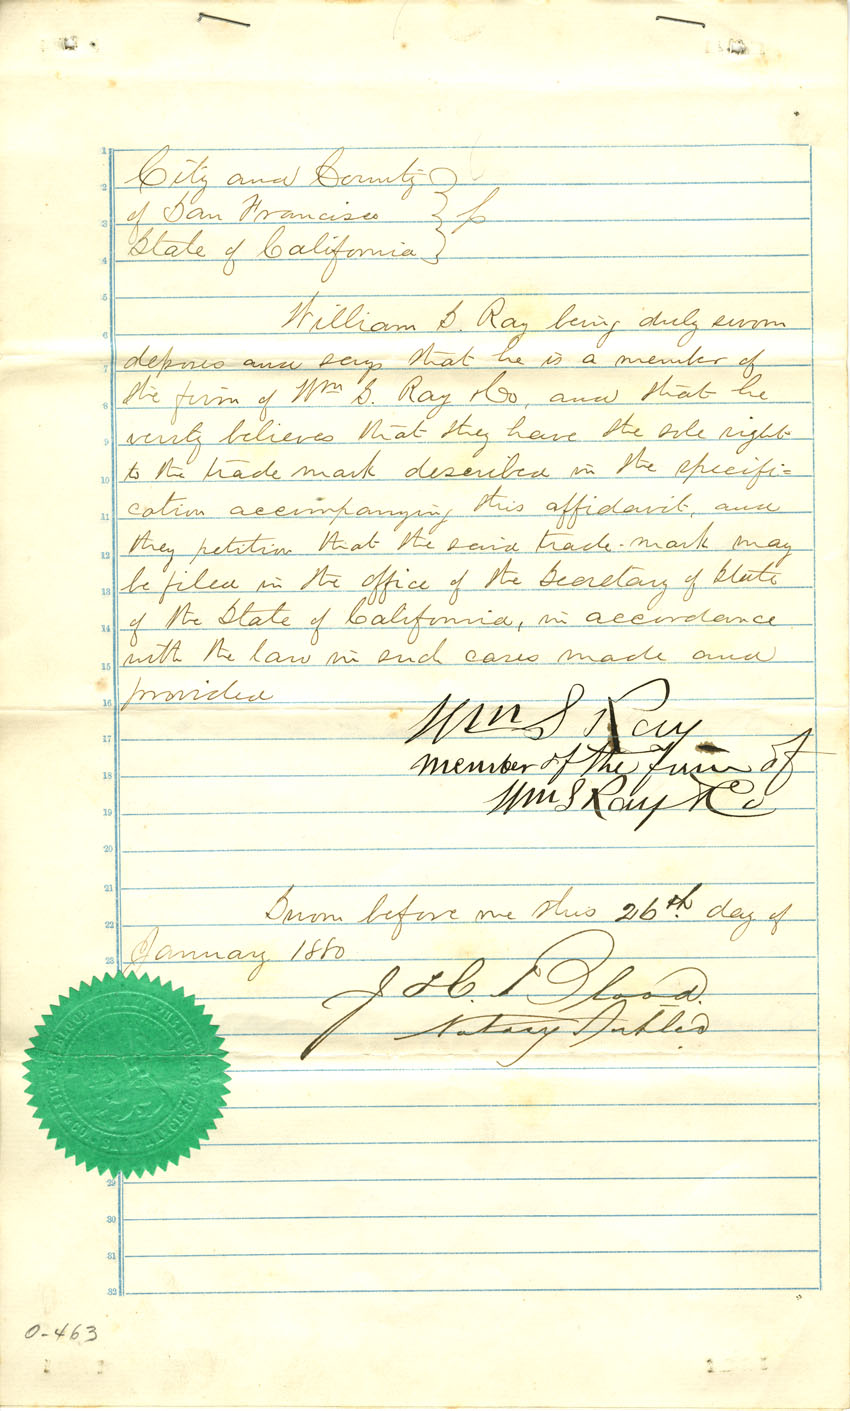 City and County
of San Francisco } ss
State of California
William S. Ray being duly sworn
deposes and says that he is a member of
the firm of Wm S. Ray & Co, and that he
verily believes that they have the sole right
to the trade mark described in the specifi=
cation accompanying this affidavit, and
they petition that the said trade-mark may
be filed in the office of the Secretary of State
of the State of California, in accordance
with the law in such cases made and
provided
Wm S Ray
member of the firm of
Wm S Ray & Co
Sworn before me this 26th day of
January 1880
J. H. Blood.
Notary Public
0-463